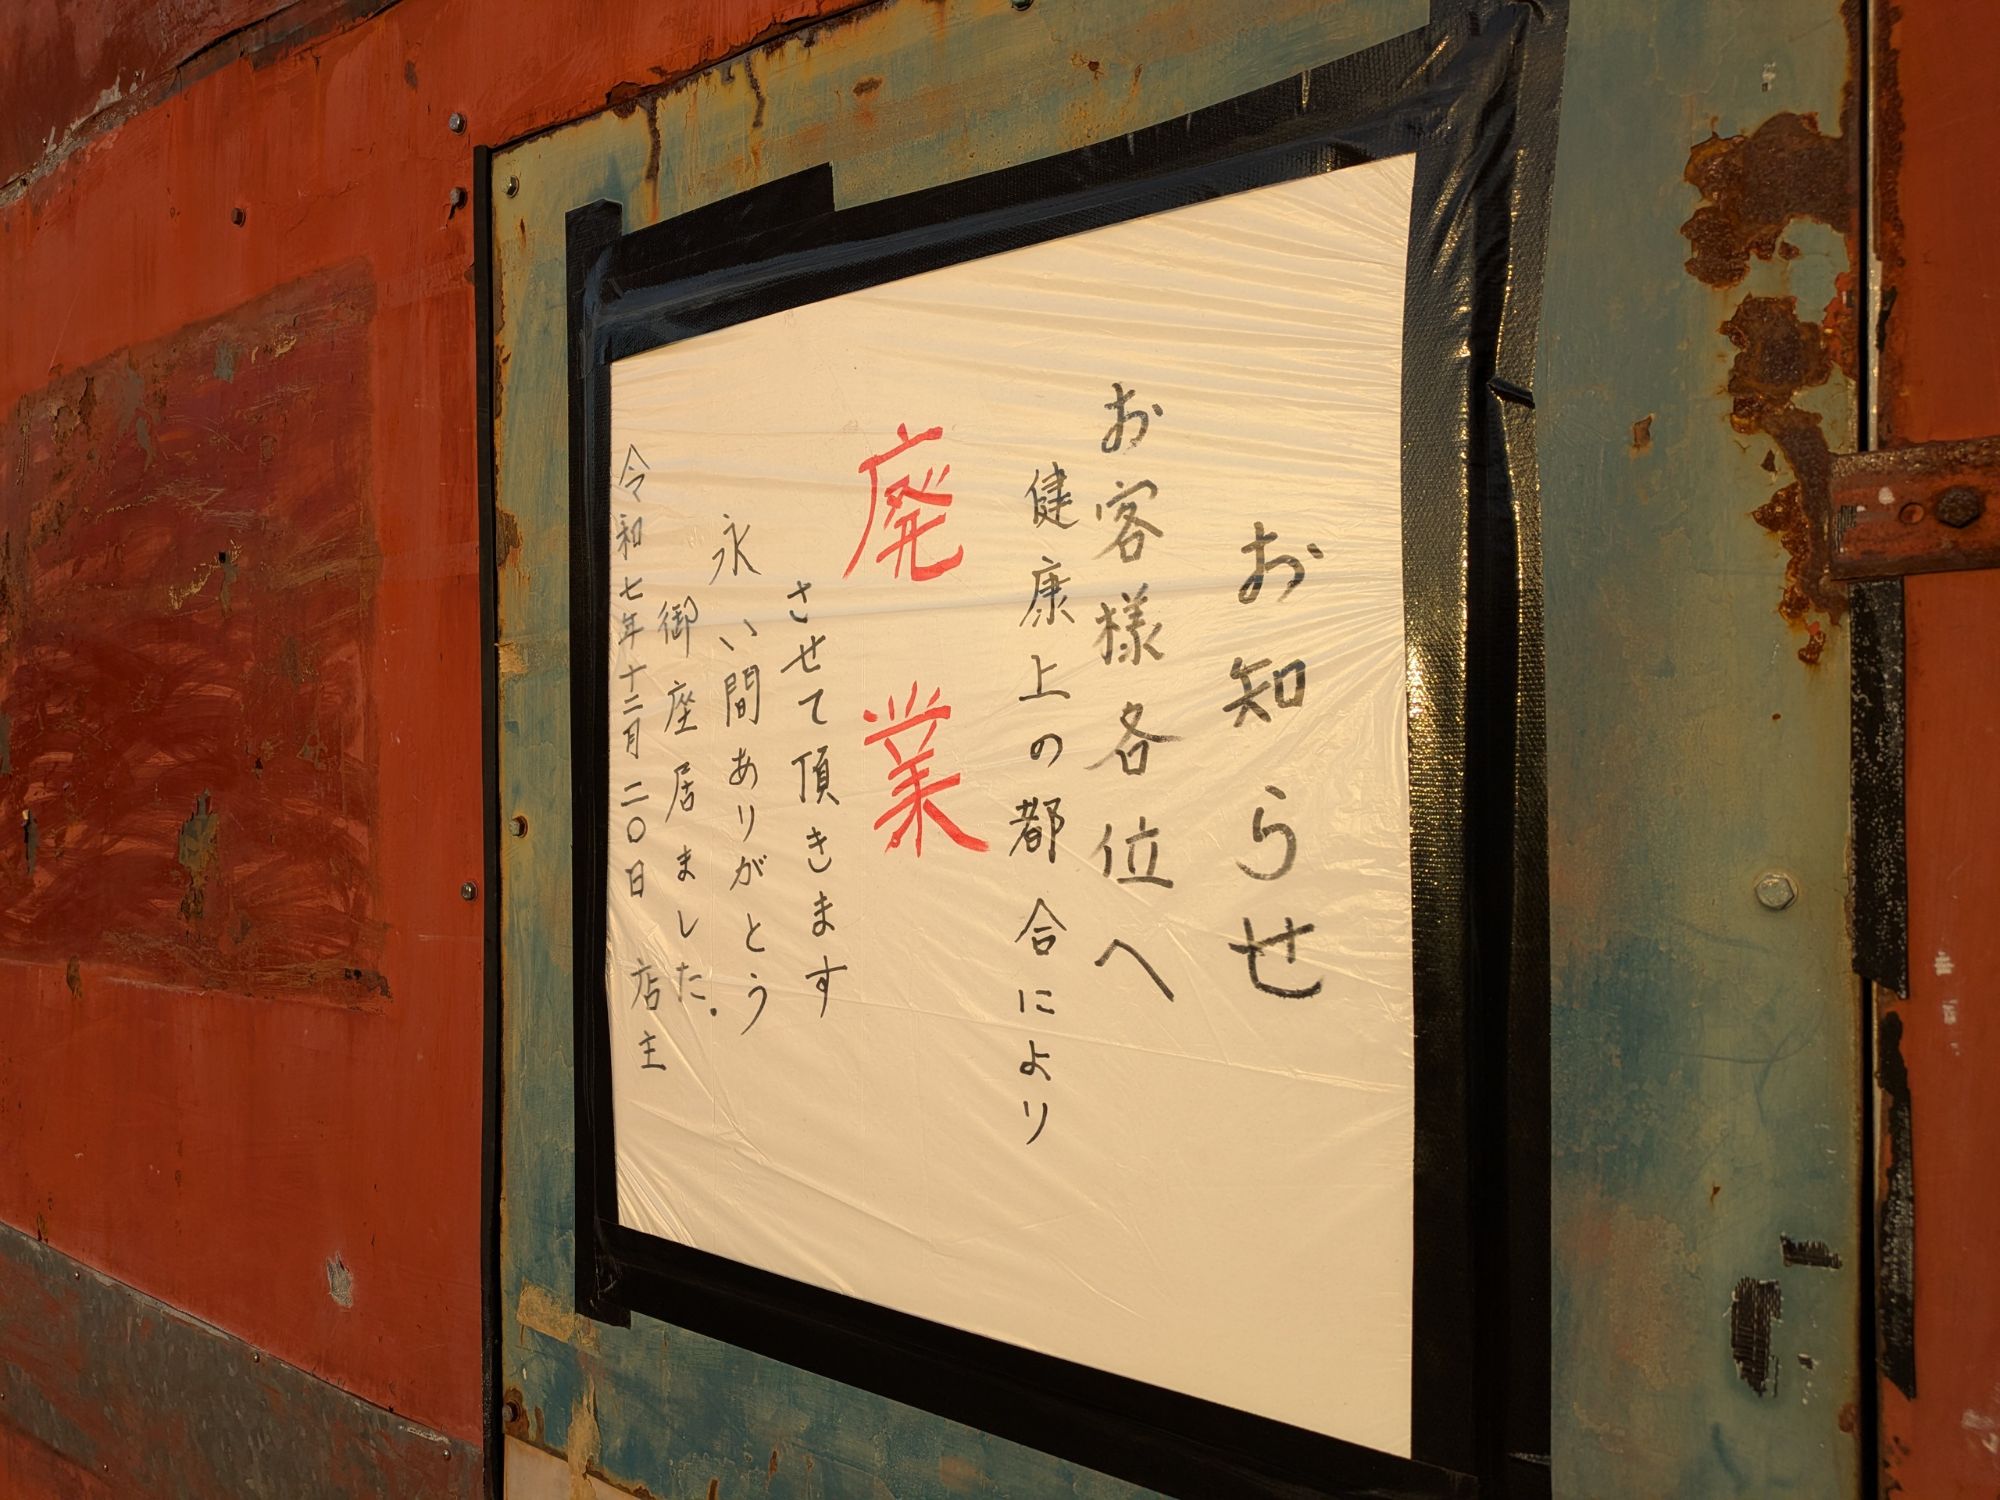 お知らせ
お客様各位へ
健康上の都合により
廃業
させて頂きます
永い間ありがとう
御座居ました.
令和七年十二月二〇日 店主